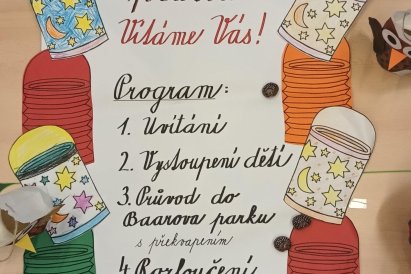 Vítáme Vás!
Program:
1. Uvítání
2. Vystoupení dětí
3. Průvod do
Baarova parku
s překvapením
4. Rozloučení